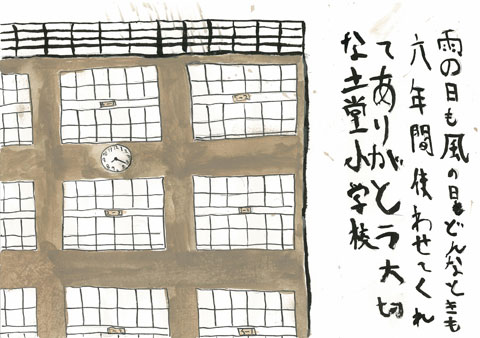 雨の日も風の日もどんなときも
六年間使わせてくれ
てありがとう大切
な土堂小学校